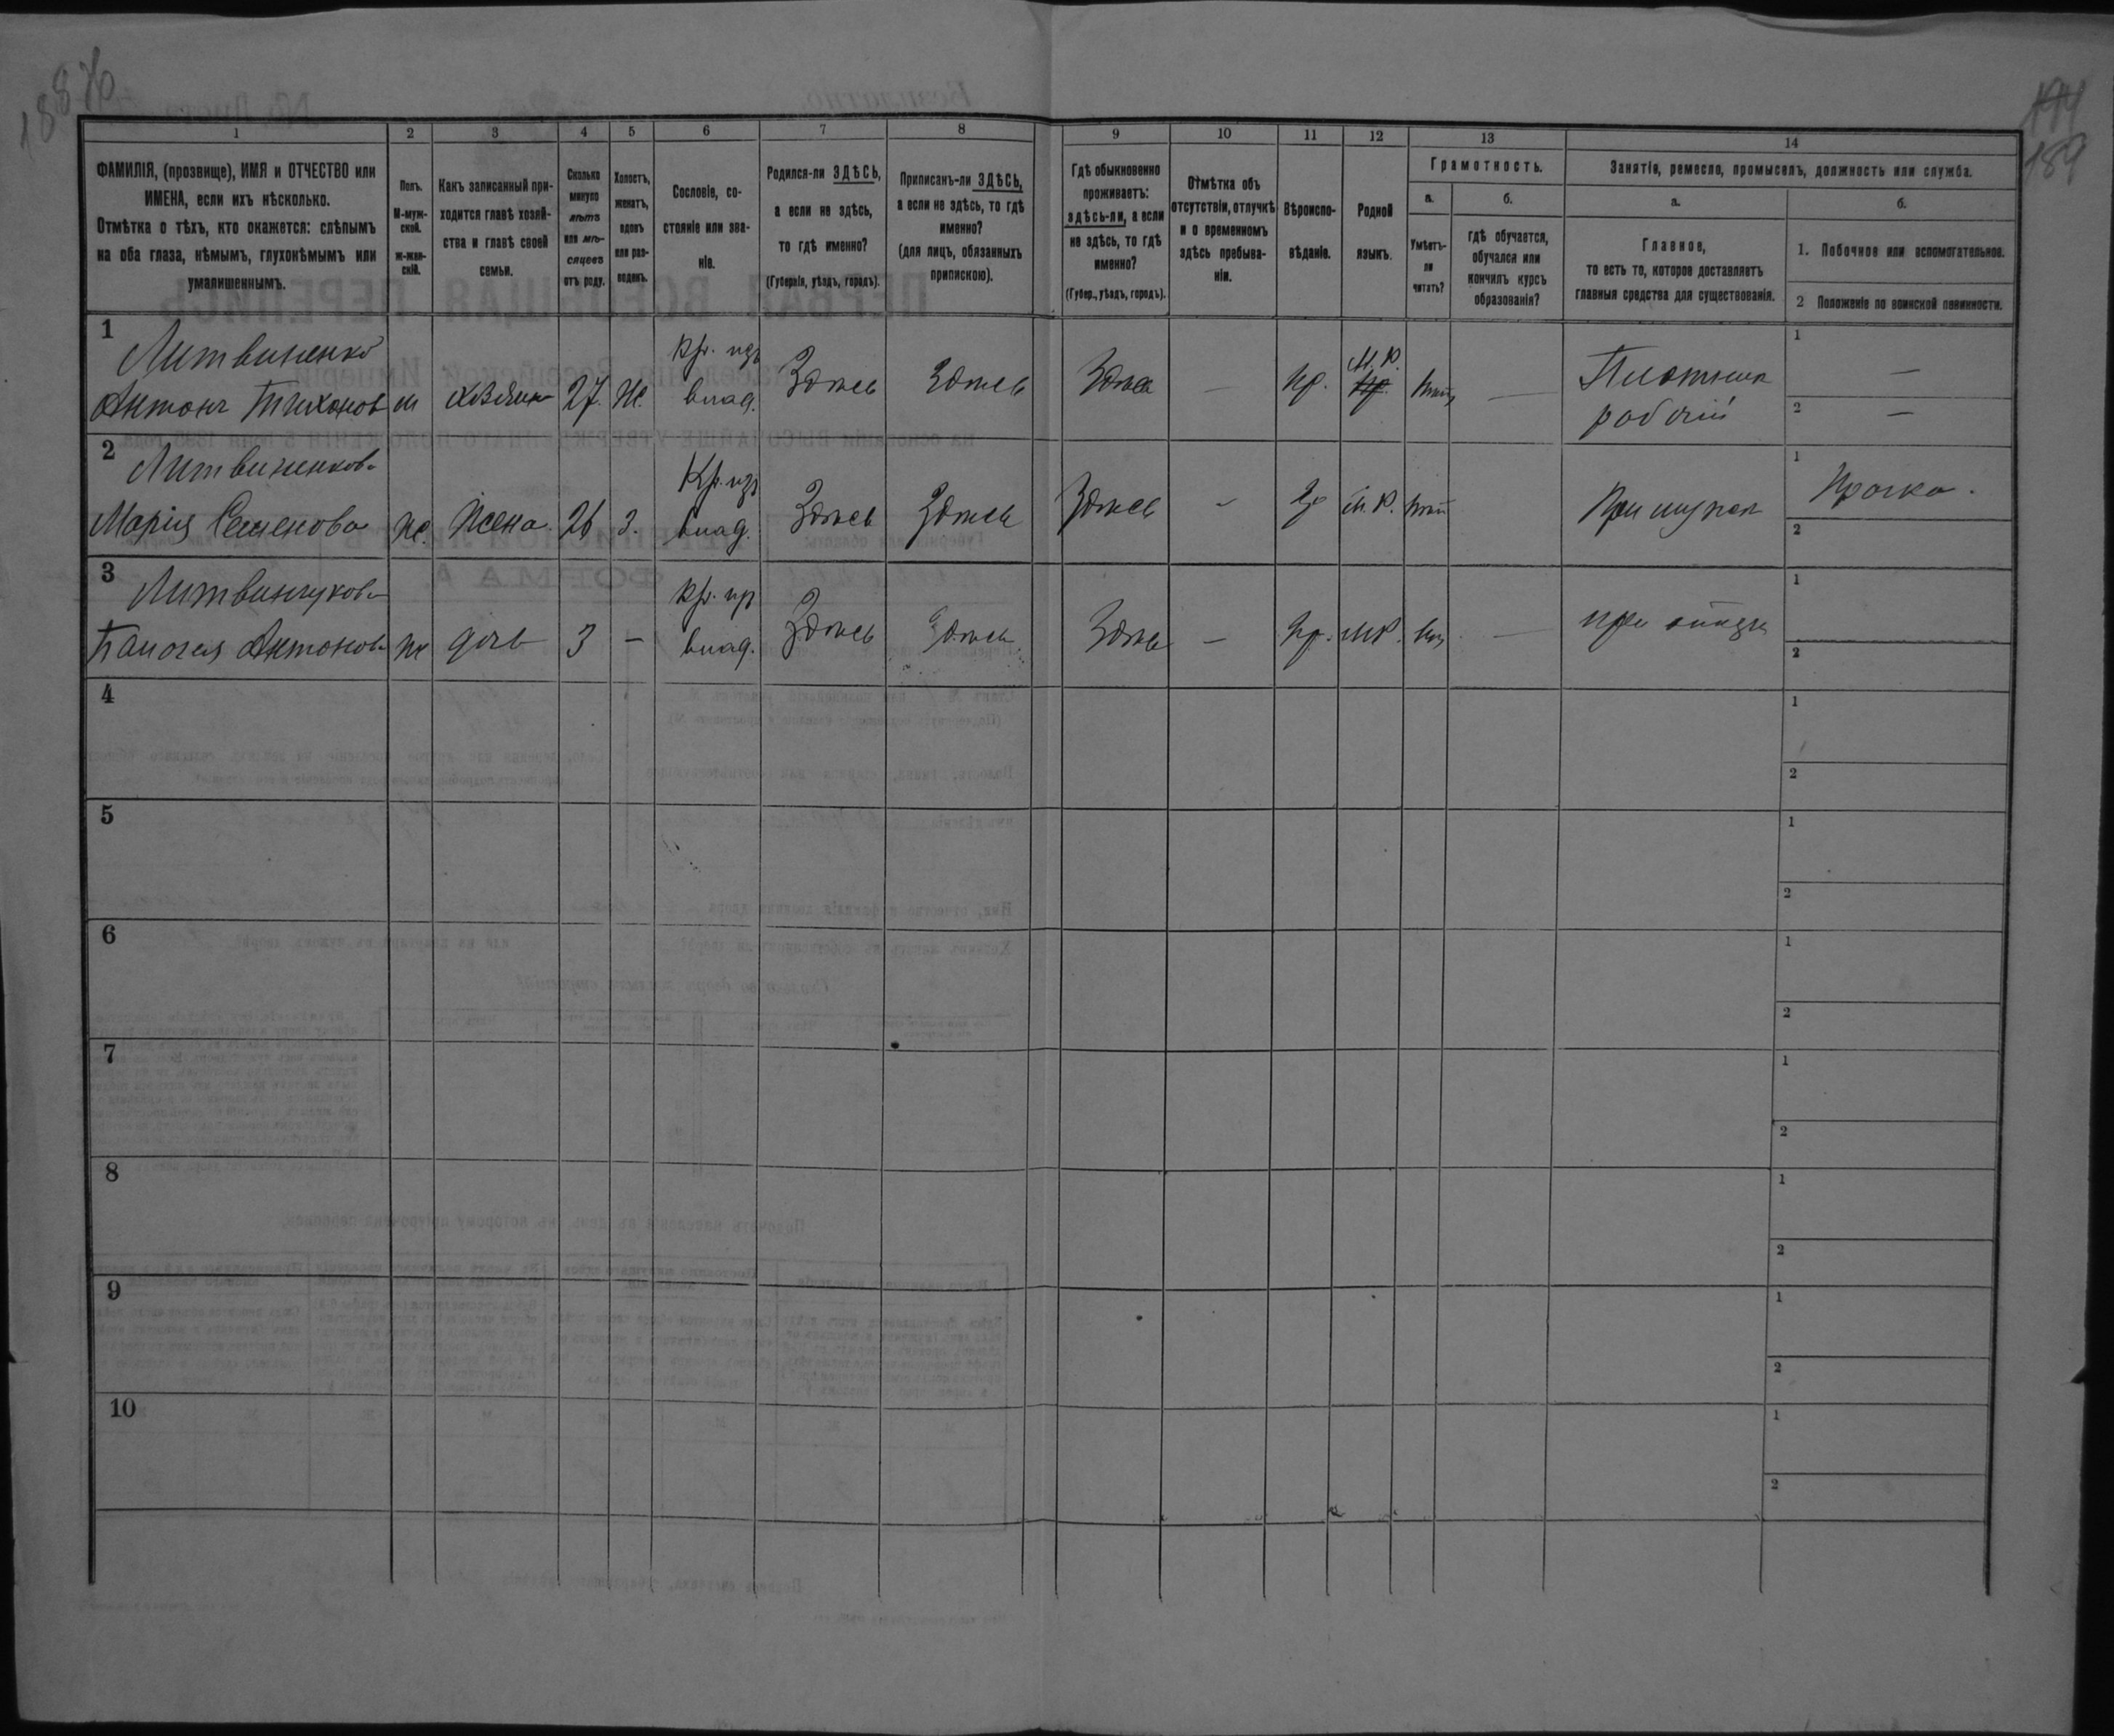 188 об
194
189
1 2 3 4 5 6 7 8 9 10 11 12 13 14
ФАМИЛІЯ, (прозвище), ИМЯ и ОТЧЕСТВО или
ИМЕНА, если ихъ нѣсколько.
Отмѣтка о тѣхъ, кто окажется: слѣпымъ
на оба глаза, нѣмымъ, глухонѣмымъ или
умалишеннымъ.
Полъ.
М-муж-
ской.
Ж-жен-
скій.
Какъ записанный при-
ходится главѣ хозяй-
ства и главѣ своей
семьи.
Сколько
минуло
лѣтъ
или мѣ-
сяцевъ
отъ роду.
Холостъ,
женатъ,
вдовъ
или раз-
веденъ.
Сословіе, со-
стояніе или зва-
ніе.
Родился-ли ЗДѢСЬ,
а если не здѣсь,
то гдѣ именно?
(Губернія, уѣздъ, городъ).
Приписанъ-ли ЗДѢСЬ,
а если не здѣсь, то гдѣ
именно?
(для лицъ, обязанныхъ
припискою).
Гдѣ обыкновенно
проживаетъ:
здѣсь-ли, а если
не здѣсь, то гдѣ
именно?
(Губер., уѣздъ, городъ).
Отмѣтка объ
отсутствіи, отлучкѣ
и о временномъ
здѣсь пребыва-
ніи.
Вѣроиспо-
вѣданіе.
Родной
языкъ.
Грамотность.
а.
Умѣетъ-
ли
читать?
б.
гдѣ обучается,
обучался или
кончилъ курсъ
образованія?
Занятіе, ремесло, промыселъ, должность или служба.
а.
Главное,
то есть то, которое доставляетъ
главныя средства для существованія.
б.
1. Побочное или вспомогательное.
2 Положеніе по воинской повинности.
1
Литвиненко
Антонъ Тихонов м хозяин 27. Ж. Кр. изъ влад. Здѣсь Здѣсь Здѣсь — пр. М.Р. нѣтъ — Плотник рабочій
1 —
2 —
2
Литвиненкова
Марія Семенова ж. жена. 26 З. Кр. изъ влад. Здѣсь Здѣсь Здѣсь - пр М.Р. нѣтъ При мужѣ
1 Прачка.
2
3
Литвинчукова
Антонова ж дочь 3 — Кр. из влад. Здѣсь Здѣсь Здѣсь — пр. МР. — при отцѣ
1
2
4
1
2
5
1
2
6
1
2
7
1
2
8
1
2
9
1
2
10
1
2